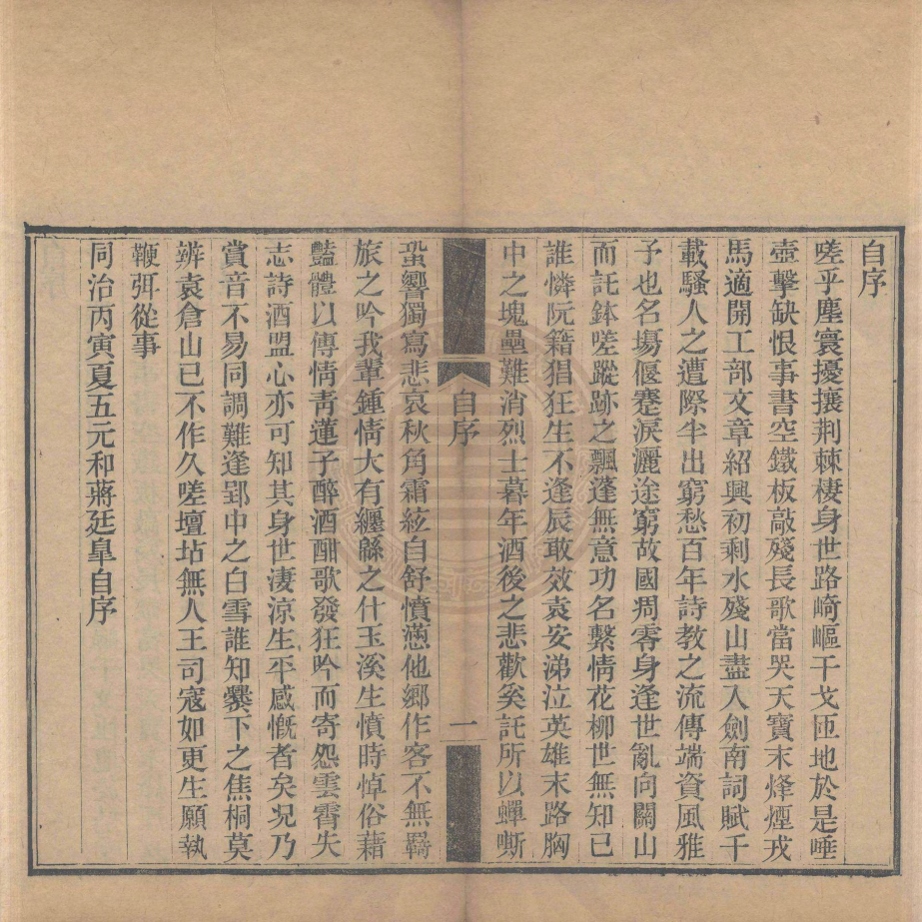 自序
嗟乎塵寰擾攘荆棘棲身世路崎嶇干戈匝地於是唾
壺擊缺恨事書空鐵板敲殘長歌當哭天寶末烽煙戎
馬適開工部文章紹興初剩水殘山盡入劍南詞賦千
載騷人之遭際半出窮愁百年詩教之流傳端資風雅
予也名塲偃蹇淚灑途窮故國凋零身逢世亂向關山
而託鉢嗟蹤跡之飄蓬無意功名繫情花柳世無知己
誰憐阮籍猖狂生不逢辰敢效袁安涕泣英雄末路胸
中之塊壘難消烈士暮年酒後之悲歡奚託所以蟬嘶
自序
一
蛩響獨寫悲哀秋角霜絃自舒憤懣他鄉作客不無羇
旅之吟我輩鍾情大有纏緜之什玉溪生憤時悼俗藉
豔體以傳情靑蓮子醉酒酣歌發狂吟而寄怨雲霄失
志詩酒盟心亦可知其身世淒涼生平感慨者矣况乃
賞音不易同調難逢郢中之白雪誰知爨下之焦桐莫
辨袁倉山已不作久嗟壇坫無人王司寇如更生願執
鞭弭從事
同治丙寅夏五元和蔣廷皐自序